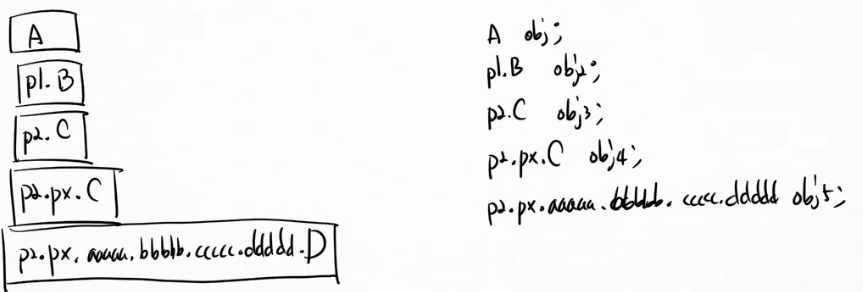 A
p1.B
p2.C
p2.px.C
p2.px.aaaaa.bbbbb.ccccc.ddddd.D
A obj;
p1.B obj2;
p2.C obj3;
p2.px.C obj4;
p2.px.aaaaa.bbbbb.ccccc.ddddd obj5;